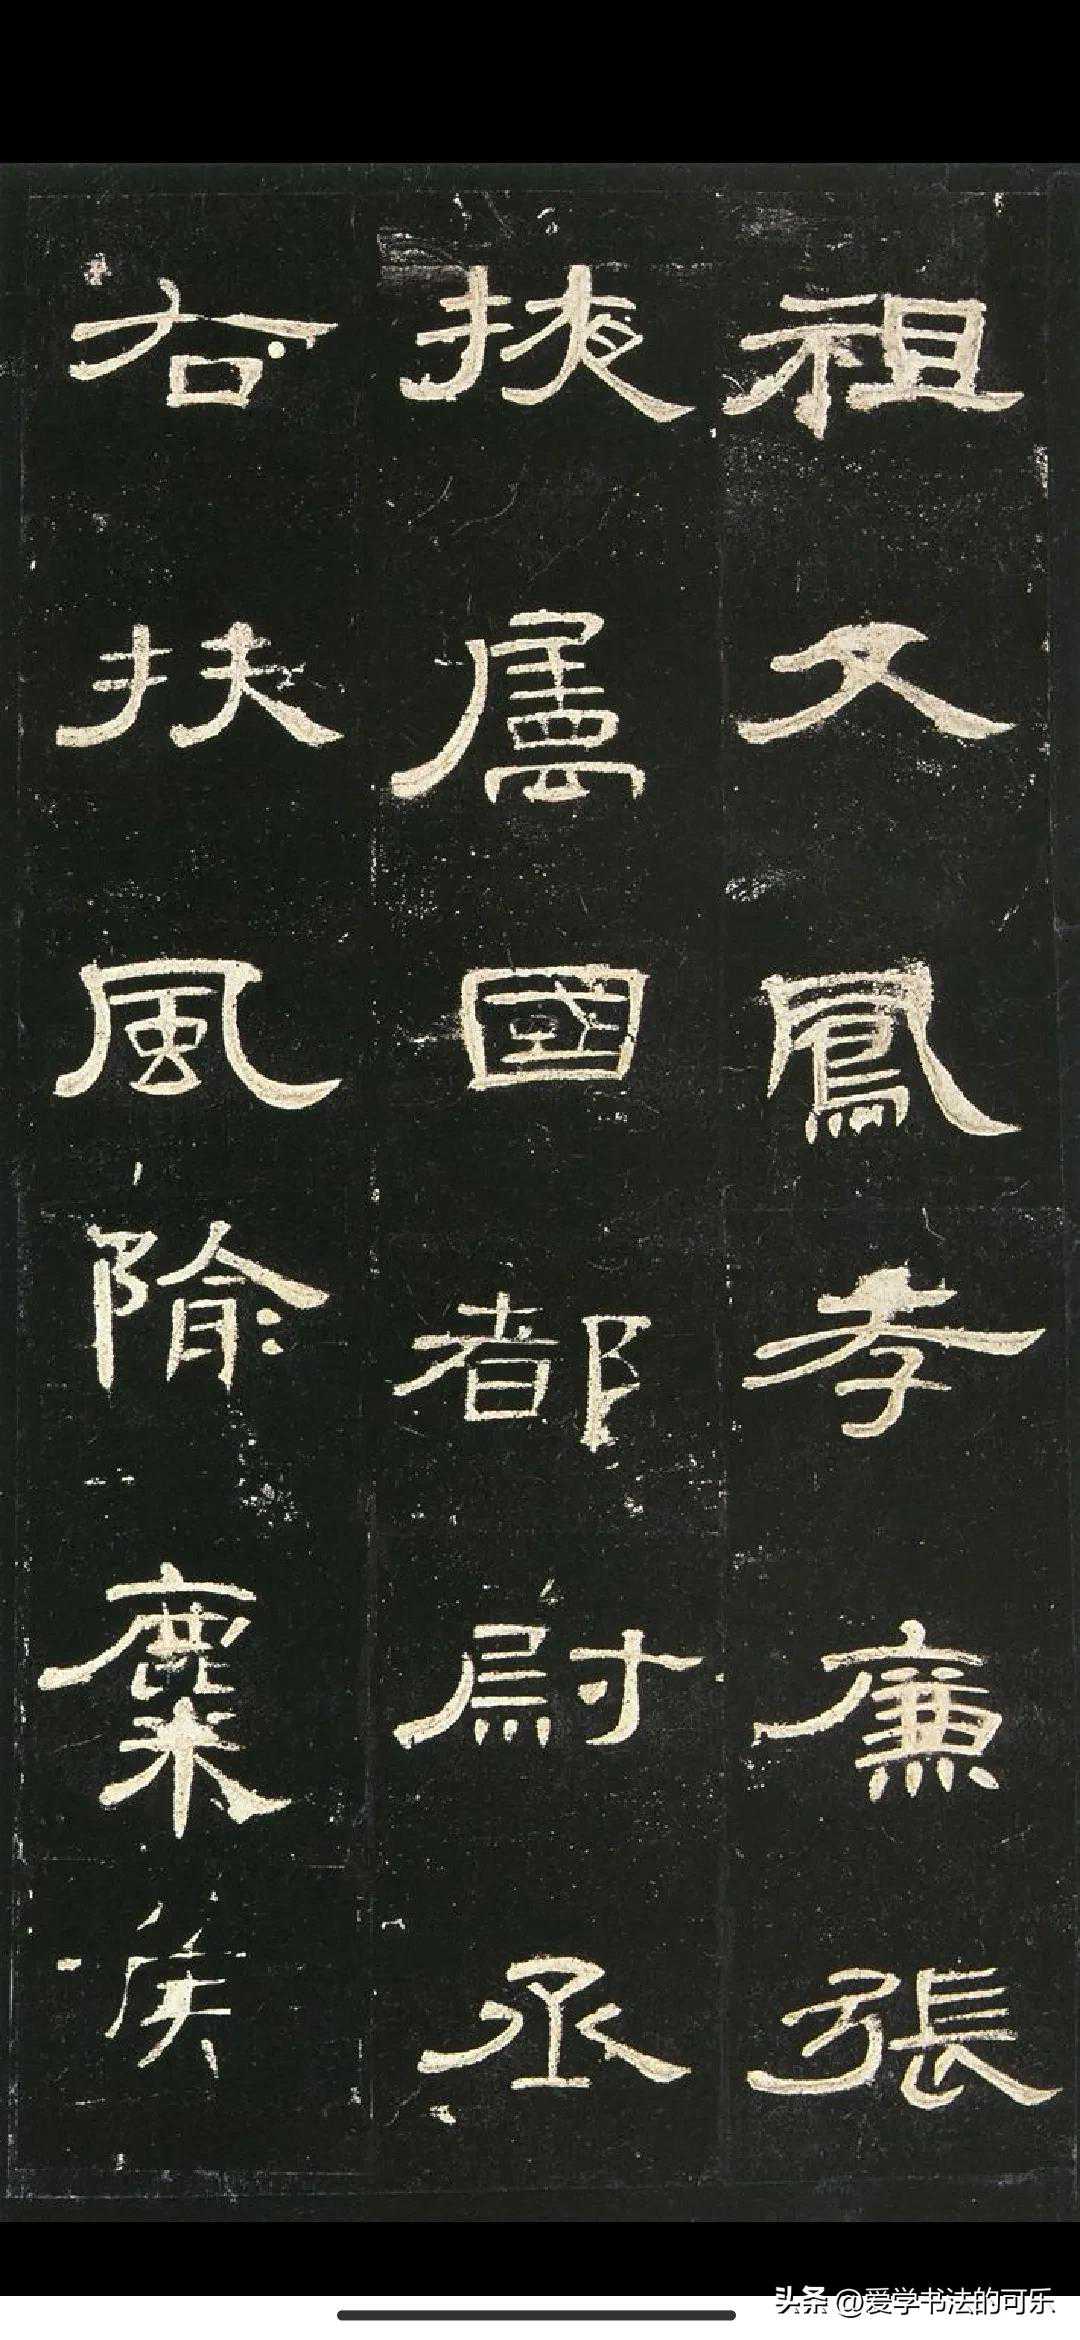 祖父鳳孝廉張
掖屬國都尉丞
右扶風隃麋侯
头条 @爱学书法的可乐